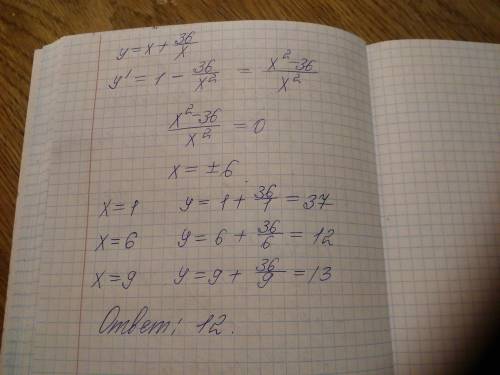 y = x + 36/x
y' = 1 - 36/x² = x²-36/x²
x²-36/x² = 0
x = ±6
x=1 y = 1 + 36/1 = 37
x=6 y = 6 + 36/6 = 12
x=9 y = 9 + 36/9 = 13
Ответ: 12.